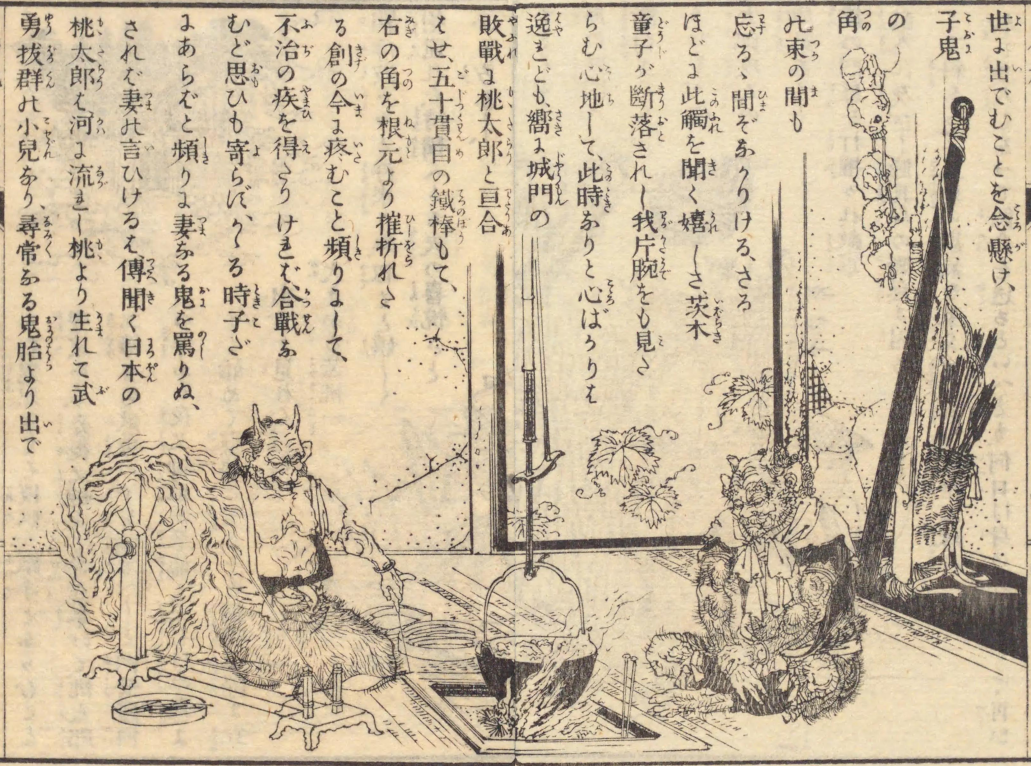 世に出でむことを念懸け、
子鬼
の
角
の束の間も
忘るゝ間ぞなかりける、さる
ほどに此觸を聞く嬉しさ、茨木
童子が斷落されし我片腕をも見た
らむ心地して、此時なりと心ばかりは
逸れども、嚮に城門の
敗戰に桃太郎と亘合
はせ、五十貫目の鐵棒もて、
右の角を根元より摧折れた
る創の今に疼むこと頻りにして、
不治の疾を得たりければ合戰な
むど思ひも寄らば、かゝる時子だ
にあらばと頻りに妻なる鬼を罵りぬ、
されば妻の言ひけるは傳聞く日本の
桃太郎は河に流れし桃より生れて武
勇拔群の小兒なり、尋常なる鬼胎より出で